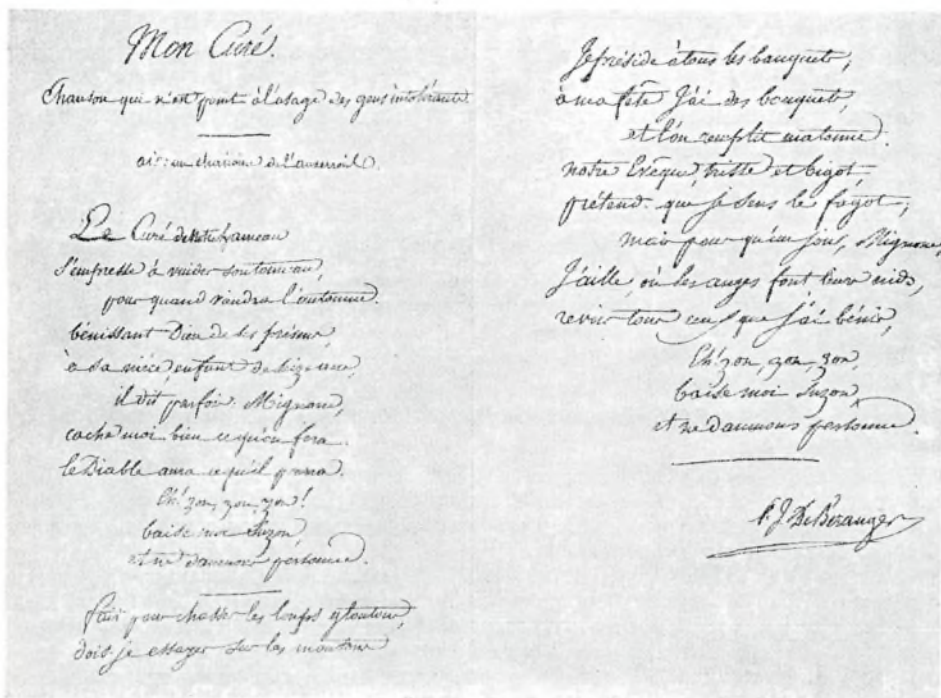 Mon Curé.
Chanson qui n'est point à l'usage des gens intolérants
air: un chanoine de l'auxerrois.
Le Curé de notre hameau
s'empresse à vuider son tonneau,
pour quand viendra l'automne.
bénissant Dieu de ses présens,
à sa nièce, enfant de seize ans,
il dit parfois: Mignone,
cache moi bien ce qu'on fera
le Diable aura ce qu'il pourra.
Eh! zon, zon, zon!
baise moi Suzon
et ne damnons personne.
fait pour chasser les loups gloutons,
dois-je essayer sur les moutons
Je préside à tous les banquets;
à ma fête J'ai des bouquets,
et l'on remplit ma tonne.
notre Evêque, triste et bigot,
prétend que je sens le fagot;
mais pour qu'un jour, Mignone,
J'aille, où les anges font leurs nids,
revoir tous ceux que J'ai bénis,
Eh! zon, zon, zon,
baise moi Suzon,
et ne damnons personne.
P. J. De Béranger